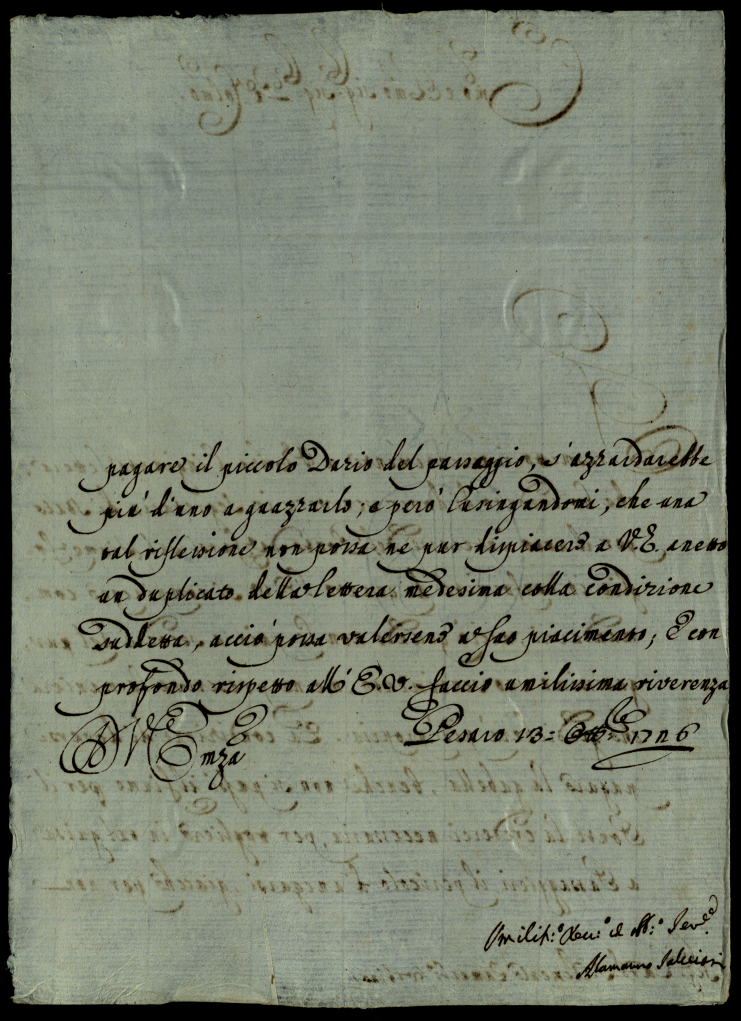 pagare il piccolo Dazio del passaggio, s'azzardarebbe
più d'uno a guazzarlo; e però lusingandomi, che una
tal riflessione non possa ne pur dispiacere a V.E. annetto
un duplicato della lettera medesima colla condizione
suddetta, acciò possa valersene a suo piacimento; E con
profondo rispetto all'E.V. faccio umilissima riverenza
Pesaro 13 = Ottbre 1726
Emza
Alamanno Salviati